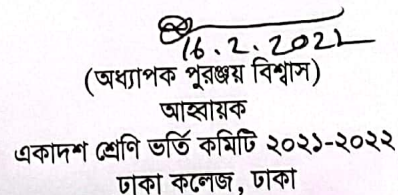 16.2.2022
(অধ্যাপক পুরঞ্জয় বিশ্বাস)
আহ্বায়ক
একাদশ শ্রেণি ভর্তি কমিটি ২০২১-২০২২
ঢাকা কলেজ, ঢাকা